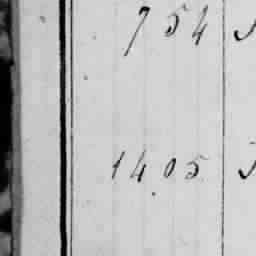 754
1405